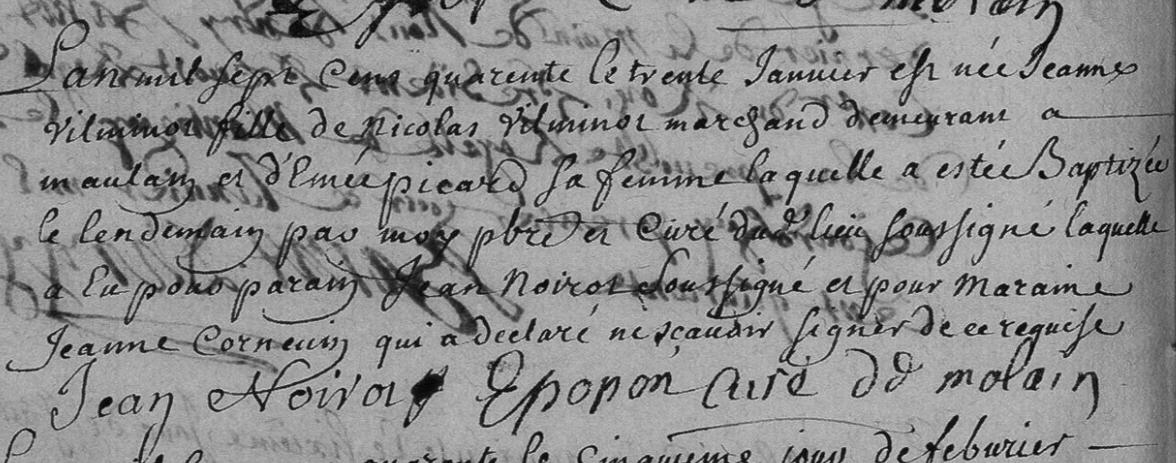 molain
L'an mil sept Cens quarente le trente Januier est née Jeanne
Vilminot fille de Nicolas Vilminot marchand demeurant a
maulain et d'Emée picard sa femme laquelle a estée Baptizée
le lendemain par moy pbre et Curé dud lieu soussigné laquelle
a Eu pour parain Jean Noirot soussigné et pour Maraine
Jeanne Corneuin qui a declaré ne sçauoir signer de ce requise
Jean Noirot Epopon curé de molain
quarente le cinquieme jour de feburier